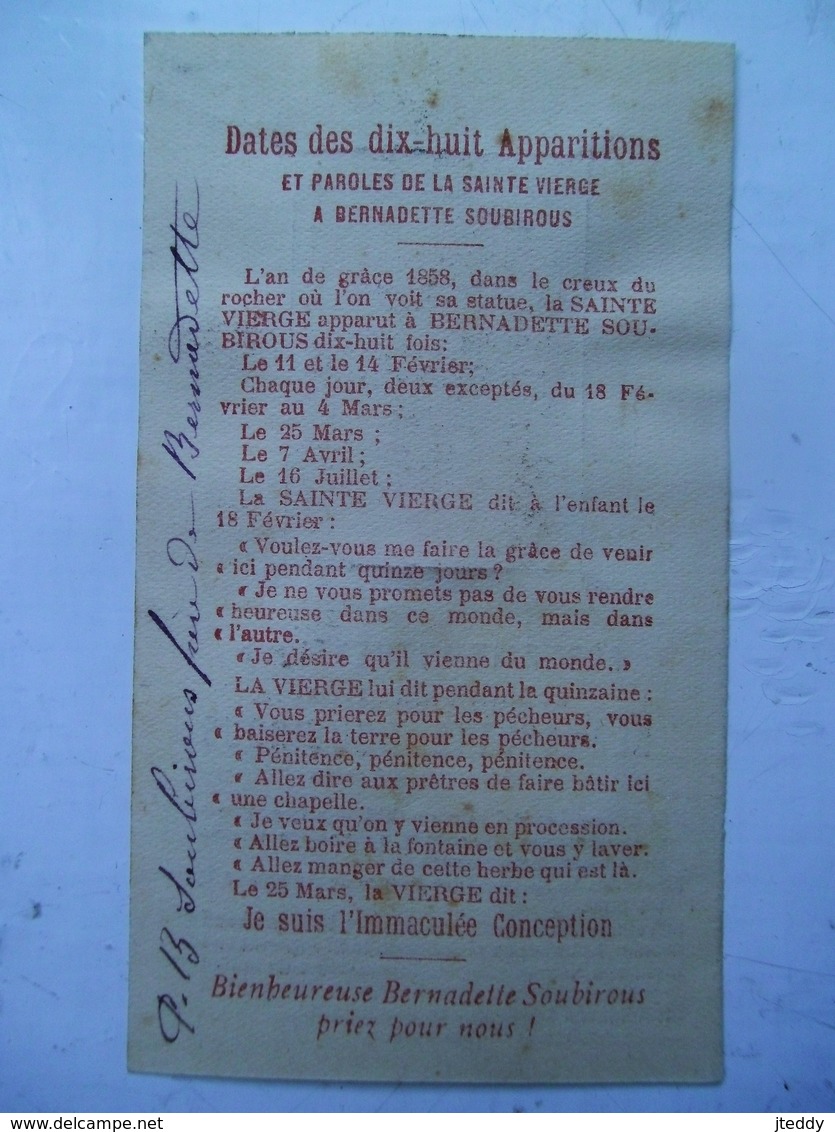 Dates des dix-huit Apparitions
ET PAROLES DE LA SAINTE VIERGE
A BERNADETTE SOUBIROUS
L'an de grâce 1858, dans le creux du
rocher où l'on voit sa statue, la SAINTE
VIERGE apparut à BERNADETTE SOU-
BIROUS dix-huit fois:
Le 11 et le 14 Février;
Chaque jour, deux exceptés, du 18 Fé-
vrier au 4 Mars;
Le 25 Mars ;
Le 7 Avril;
Le 16 Juillet;
La SAINTE VIERGE dit à l'enfant le
18 Février :
« Voulez-vous me faire la grâce de venir
« ici pendant quinze jours?
« Je ne vous promets pas de vous rendre
« heureuse dans ce monde, mais dans
« l'autre.
« Je désire qu'il vienne du monde. »
LA VIERGE lui dit pendant la quinzaine :
« Vous prierez pour les pécheurs, vous
« baiserez la terre pour les pécheurs.
« Pénitence, pénitence, pénitence.
« Allez dire aux prêtres de faire bâtir ici
« une chapelle.
« Je veux qu'on y vienne en procession.
« Allez boire à la fontaine et vous y laver.
« Allez manger de cette herbe qui est là.
Le 25 Mars, la VIERGE dit :
Je suis l'Immaculée Conception
Bienheureuse Bernadette Soubirous
priez pour nous !
P. B Soubirous frère de Bernadette
delcampe.net
jteddy